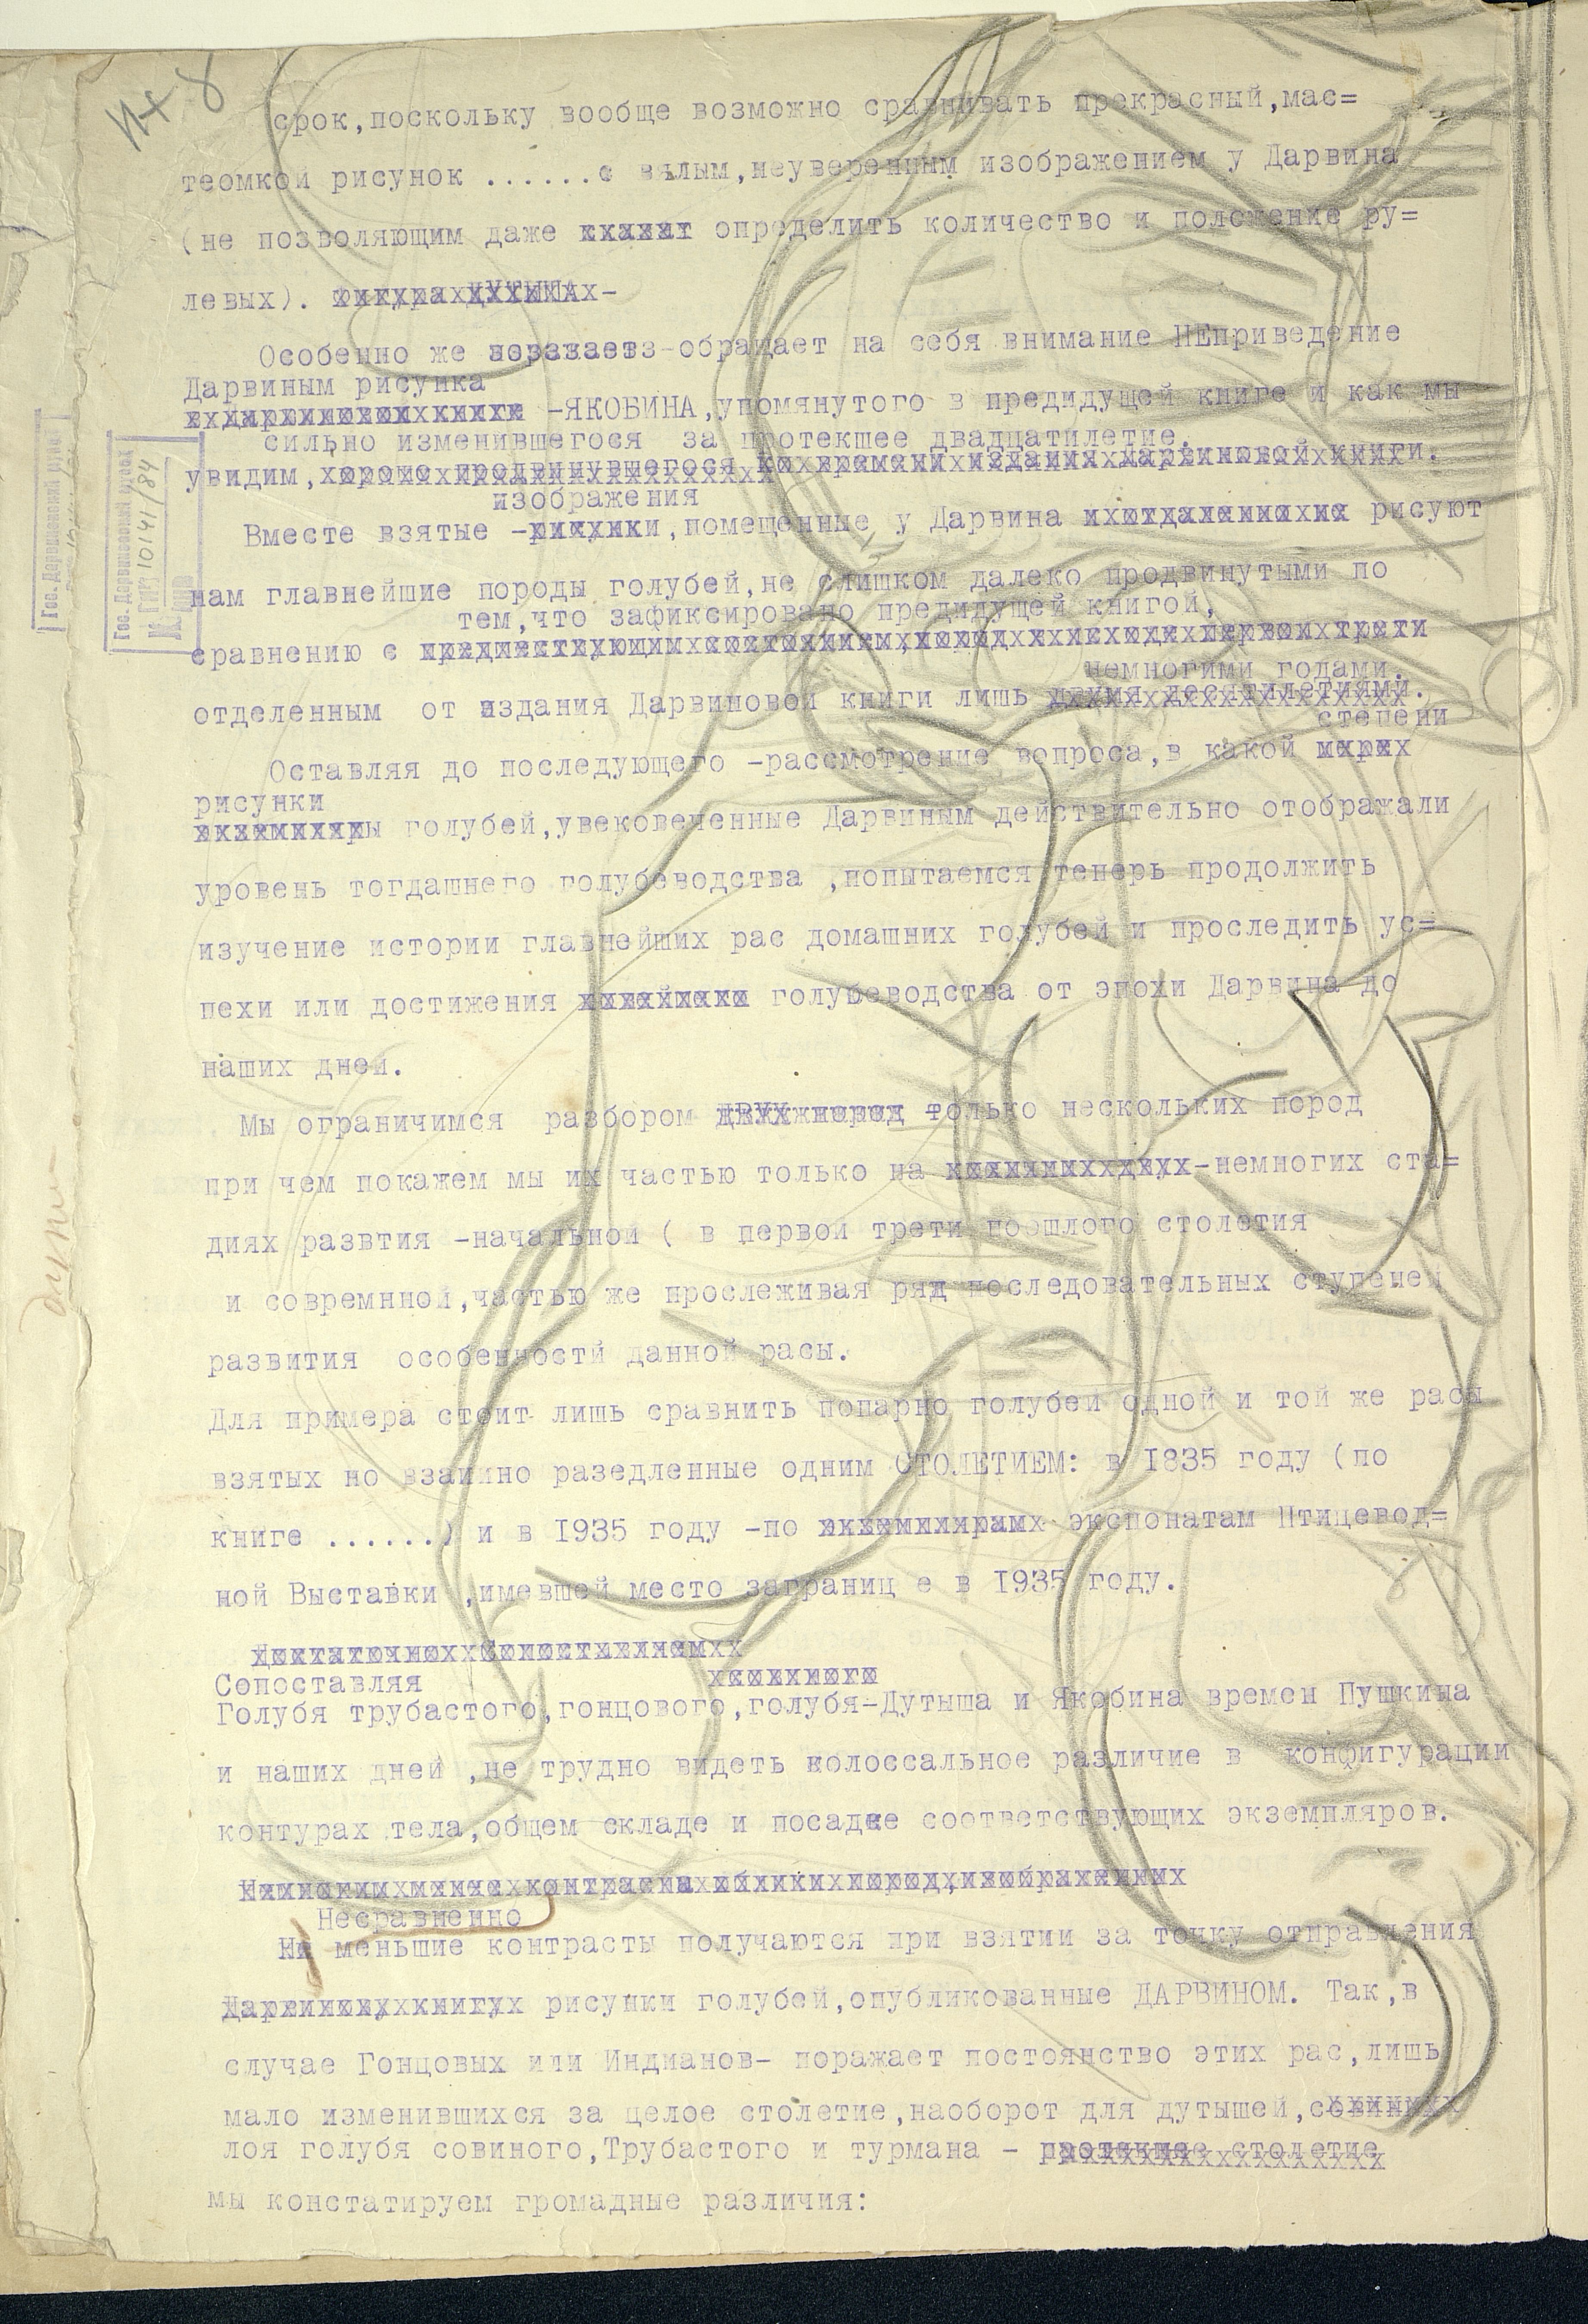 срок,поскольку вообще возможно сравнивать прекрасный,мас=
теомкой рисунок ......с вялым,неуверенным изображением у Дарвина
(не позволяющим даже определить количество и положение ру=
левых). фигура ДУТЫША-
Особенно же -обращает на себя внимание НЕприведение
Дарвиным рисунка
-ЯКОБИНА,упомянутого в предидущей книге и как мы
сильно изменившегося за протекшее двадцатилетие.
увидим,хорошо продвинувшегося ко времени издания Дарвиновой книги.
изображения
Вместе взятые -рисунки,помещенные у Дарвина рисуют
нам главнейшие породы голубей,не слишком далеко продвинутыми по
тем,что зафиксировано предидущей книгой,
сравнению с
немногими годами.
отделенным от издания Дарвиновой книги лишь двумя десятилетиями.
степени
Оставляя до последующего -рассмотрение вопроса,в какой мере
рисунки
голубей,увековеченные Дарвиным действительно отображали
уровень тогдашнего голубеводства ,попытаемся теперь продолжить
изучение истории главнейших рас домашних голубей и проследить ус=
пехи или достижения голубеводства от эпохи Дарвина до
наших дней.
Мы ограничимся разбором ДВУХ пород только нескольких пород
при чем покажем мы их частью только на -немногих ста=
диях развтия -начальной ( в первой трети поошлого столетия
и совремнной,частью же прослеживая ряд последовательных ступеней
развития особенностй данной расы.
Для примера стоит лишь сравнить попарно голубей одной и той же расы
взятых но взаимно разедленные одним СТОЛЕТИЕМ: в 1835 году (по
книге ......) и в 1935 году -по экспонатам Птицевод=
ной Выставки ,имевшей место заграниц е в 1935 году.
Сопоставляя
Голубя трубастого,гонцового,голубя-Дутыша и Якобина времен Пушкина
и наших дней ,не трудно видеть колоссальное различие в конфигурации
контурах тела,общем складе и посадке соответствующих экземпляров.
Несравненно
Не меньшие контрасты получаются при взятии за точку отправления
рисунки голубей,опубликованные ДАРВИНОМ. Так,в
случае Гонцовых или Индианов- поражает постоянство этих рас,лишь
мало изменившихся за целое столетие,наоборот для дутышей,совиных
лоя голубя совиного,Трубастого и турмана - протекшее столетие
мы констатируем громадные различия:
Гос. Дарвиновский музей
10141/84